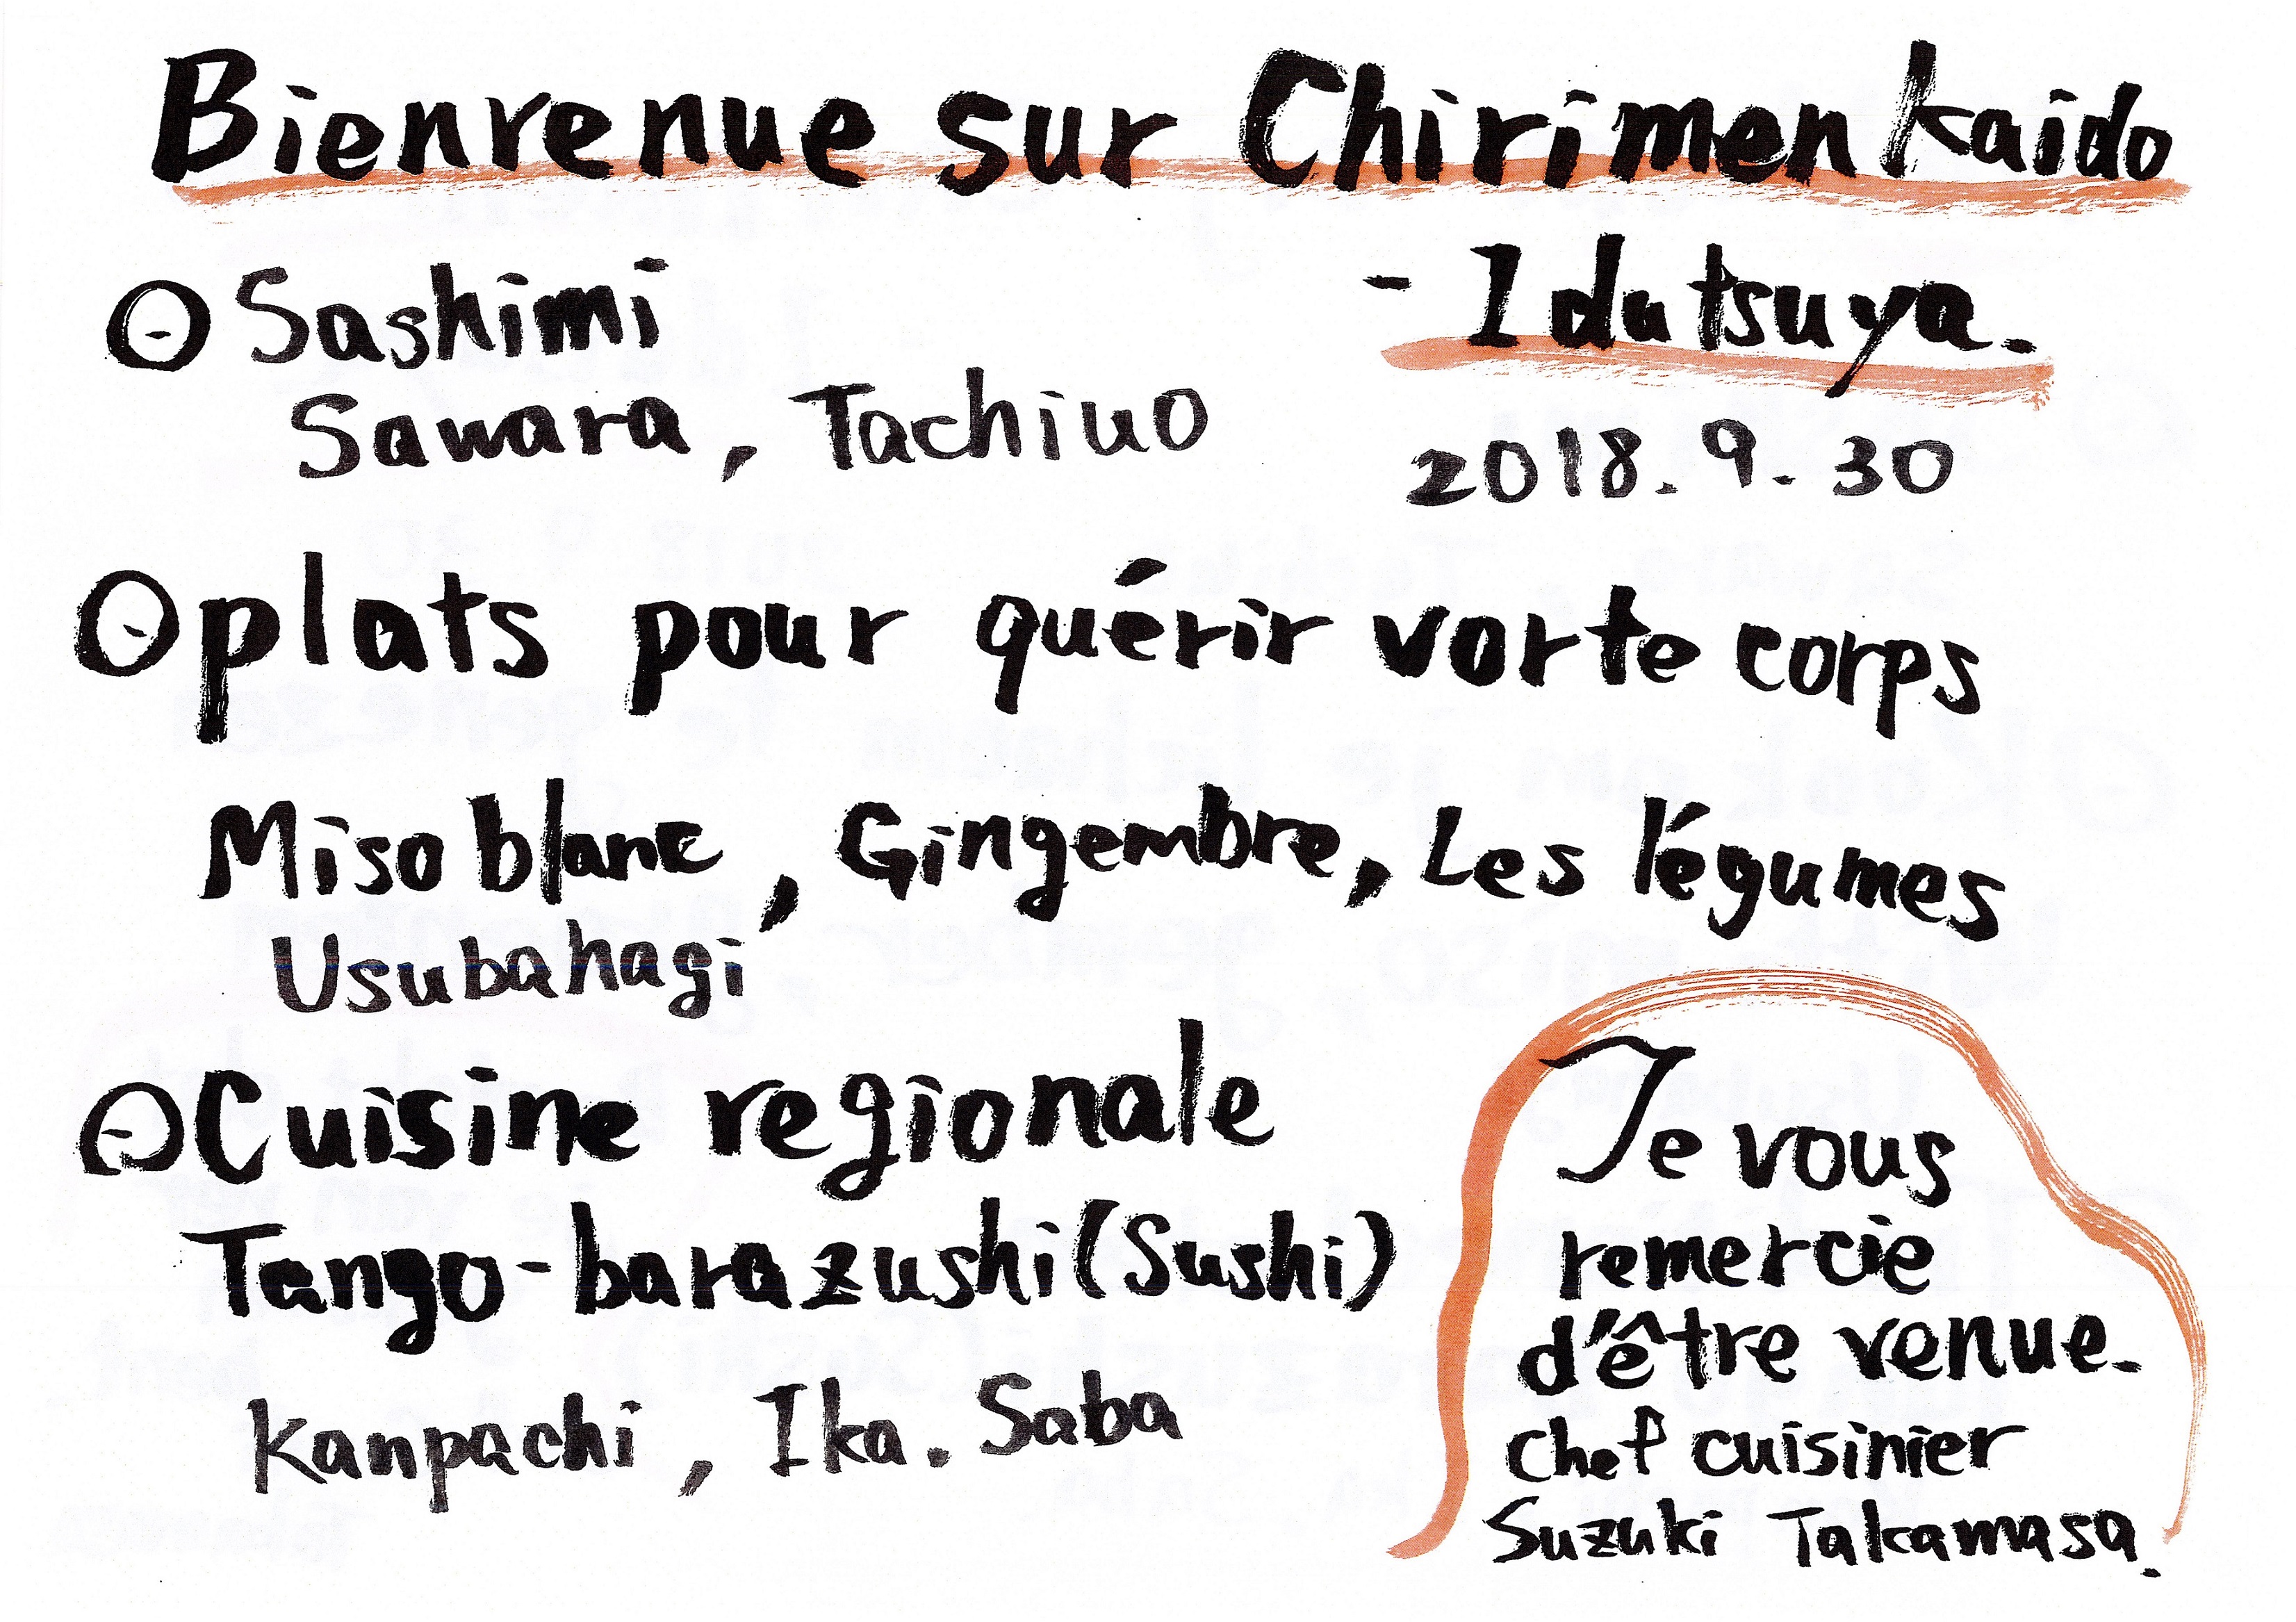 Bienvenue sur Chirimen kaido
- Idutsuya.
2018. 9. 30
Sashimi
Sawara, Tachiuo
plats pour quérir vorte corps
Miso blanc, Gingembre, Les légumes
Usubahagi
Cuisine regionale
Tango-barazushi (Sushi)
Kanpachi, Ika. Saba
Je vous
remercie
d'être venue.
Chef cuisinier
Suzuki Takamasa.